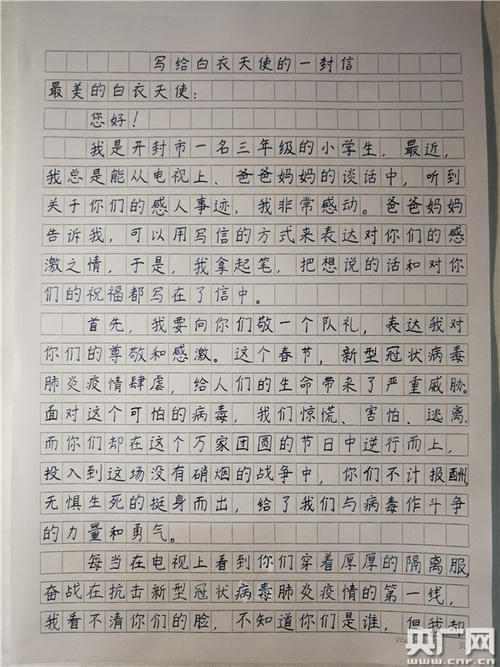 写给白衣天使的一封信
最美的白衣天使：
您好！
我是开封市一名三年级的小学生，最近，
我总是能从电视上、爸爸妈妈的谈话中，听到
关于你们的感人事迹，我非常感动。爸爸妈妈
告诉我，可以用写信的方式来表达对你们的感
激之情，于是，我拿起笔，把想说的话和对你
们的祝福都写在了信中。
首先，我要向你们敬一个队礼，表达我对
你们的尊敬和感激。这个春节，新型冠状病毒
肺炎疫情肆虐，给人们的生命带来了严重威胁。
面对这个可怕的病毒，我们惊慌、害怕、逃离，
而你们却在这个万家团圆的节日中逆行而上，
投入到这场没有硝烟的战争中，你们不计报酬，
无惧生死的挺身而出，给了我们与病毒作斗争
的力量和勇气。
每当在电视上看到你们穿着厚厚的隔离服，
奋战在抗击新型冠状病毒肺炎疫情的第一线，
我看不清你们的脸，不知道你们是谁，但我却
央广网
www.cnr.cn